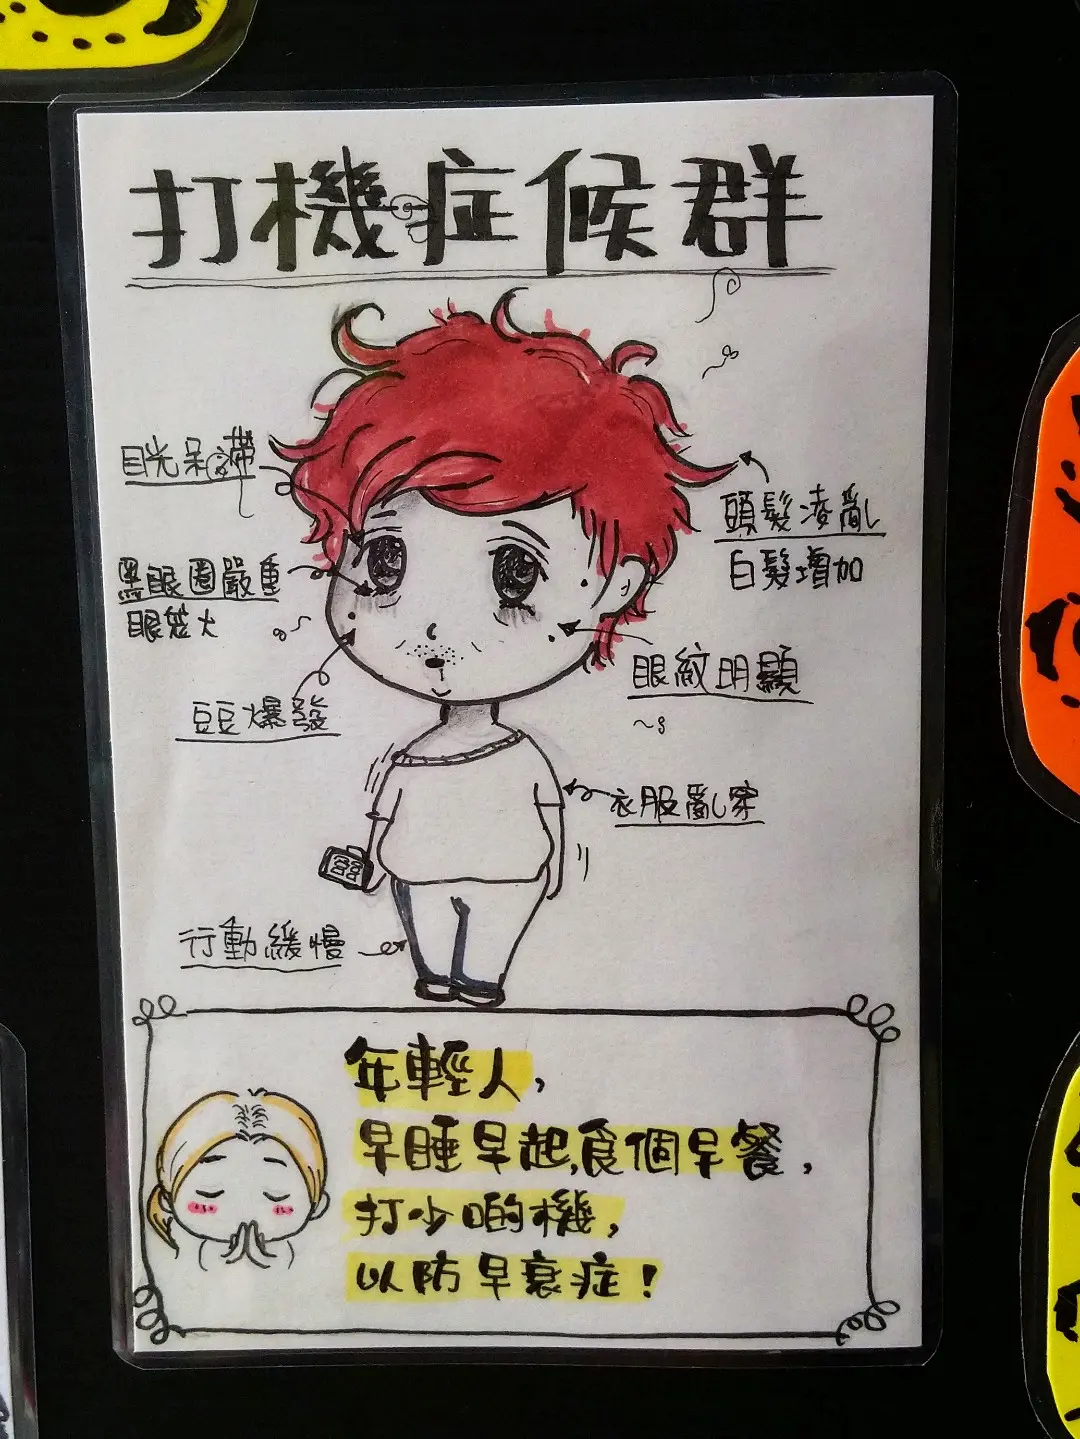 打機症候群
目光呆滯
頭髮凌亂
白髮增加
黑眼圈嚴重
眼笩大
眼紋明顯
豆豆爆發
衣服亂穿
行動緩慢
年輕人,
早睡早起,食個早餐,
打少啲機,
以防早衰症!